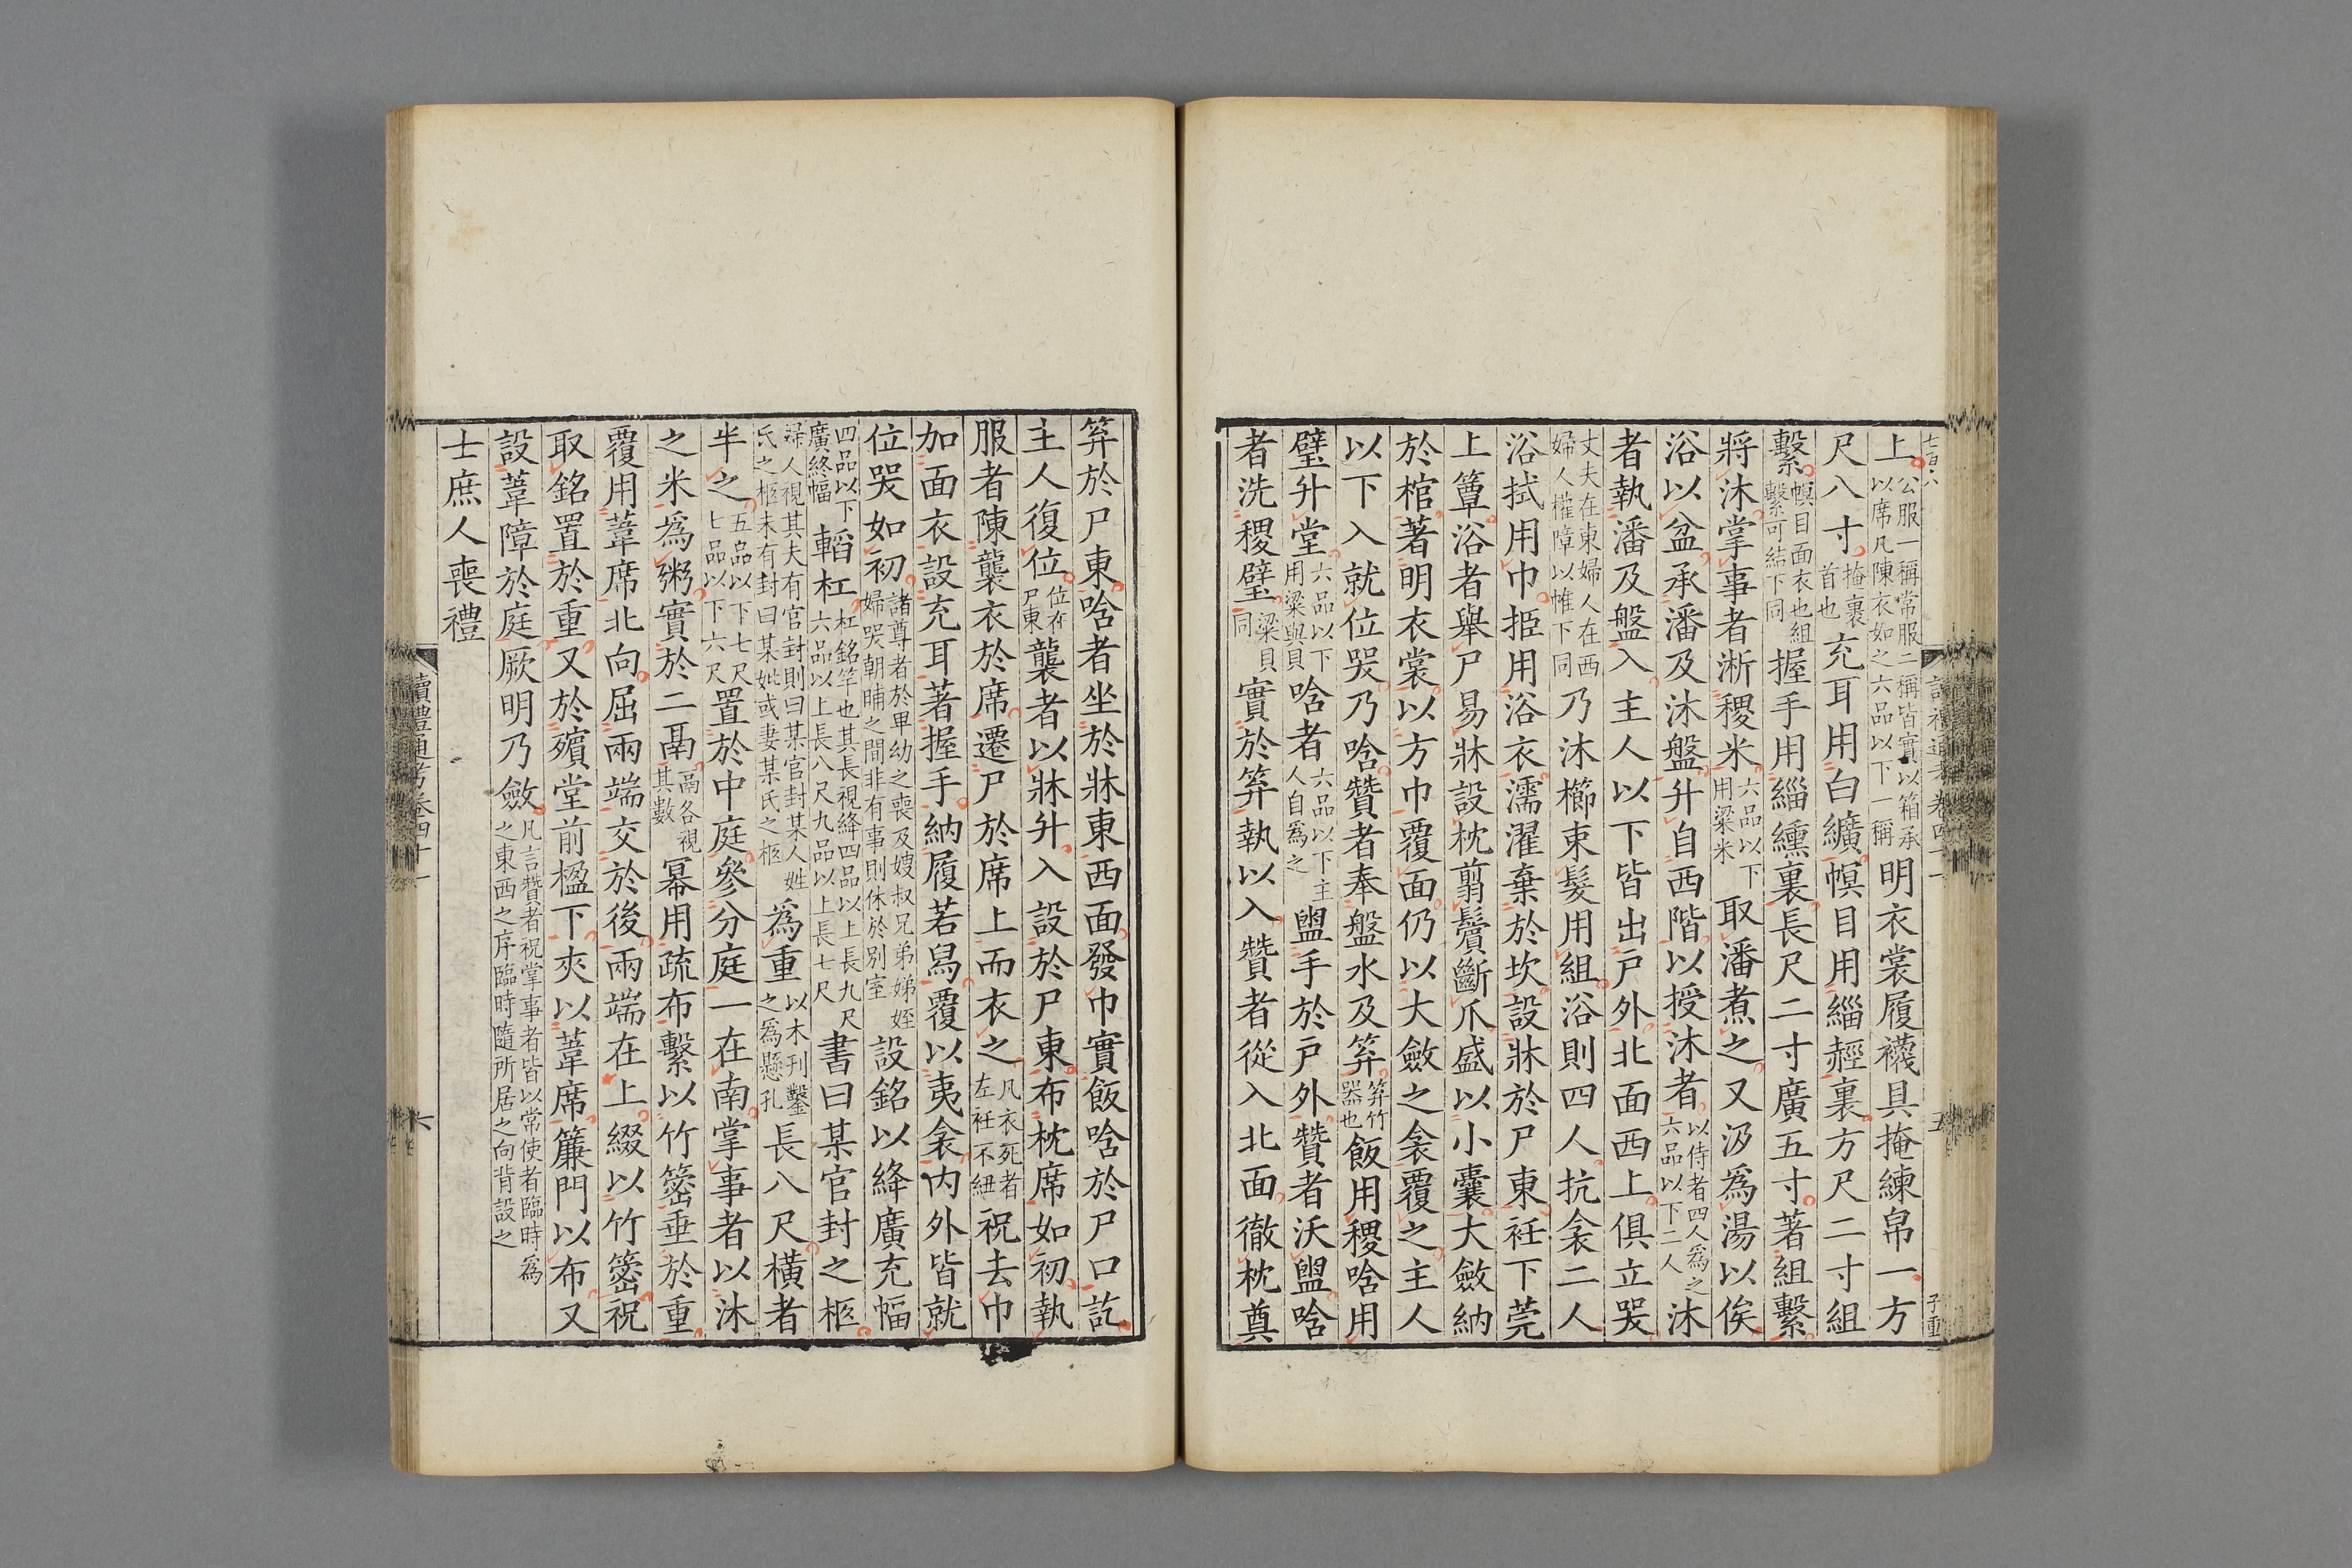 七百八
讀禮通考卷四十一
五
子重
上公服一稱常服二稱皆實以箱承以席凡陳衣如之六品以下一稱明衣裳履襪具掩練帛一方
尺八寸掩裹首也充耳用白纊幎目用緇䞓裏方尺二寸組
繫幎目面衣也組繫可結下同握手用緇纁裏長尺二寸廣五寸著組繫
將沐掌事者淅稷米六品以下用粱米取潘煮之又汲爲湯以俟
浴以盆承潘及沐盤升自西階以授沐者以侍者四人爲之六品以下二人沐
者執潘及盤入主人以下皆出戸外北面西上俱立哭
丈夫在東婦人在西婦人權障以帷下同乃沐櫛束髮用組浴則四人抗衾二人
浴拭用巾挋用浴衣濡濯棄於坎設牀於尸東衽下莞
上簟浴者舉尸易牀設枕翦鬚斷爪盛以小囊大斂納
於棺著明衣裳以方巾覆面仍以大斂之衾覆之主人
以下入就位哭乃唅贊者奉盤水及笲笲竹器也飯用稷唅用
璧升堂六品以下用粱與貝唅者六品以下主人自爲之盥手於戸外贊者沃盥唅
者洗稷璧粱貝同實於笲執以入贊者從入北面徹枕奠
笲於尸東唅者坐於牀東西面發巾實飯唅於尸口訖
主人復位位在尸東襲者以牀升入設於尸東布枕席如初執
服者陳襲衣於席遷尸於席上而衣之凡衣死者左衽不紐祝去巾
加面衣設充耳著握手納履若舄覆以夷衾内外皆就
位哭如初諸尊者於卑幼之喪及嫂叔兄弟娣姪婦哭朝晡之間非有事則休於別室設銘以絳廣充幅
四品以下廣終幅韜杠杠銘竿也其長視絳四品以上長九尺六品以上長八尺九品以上長七尺書曰某官封之柩
婦人視其夫有官封則曰某官封某人姓氏之柩未有封曰某妣或妻某氏之柩爲重以木刊鑿之爲懸孔長八尺橫者
半之五品以下七尺七品以下六尺置於中庭參分庭一在南掌事者以沐
之米爲粥實於二鬲鬲各視其數冪用疏布繫以竹𥰠垂於重
覆用葦席北向屈兩端交於後兩端在上綴以竹𥰠祝
取銘置於重又於殯堂前楹下夾以葦席簾門以布又
設葦障於庭厥明乃斂凡言贊者祝掌事者皆以常使者臨時爲之東西之序臨時隨所居之向背設之
士庶人喪禮
讀禮通考卷四十一
六